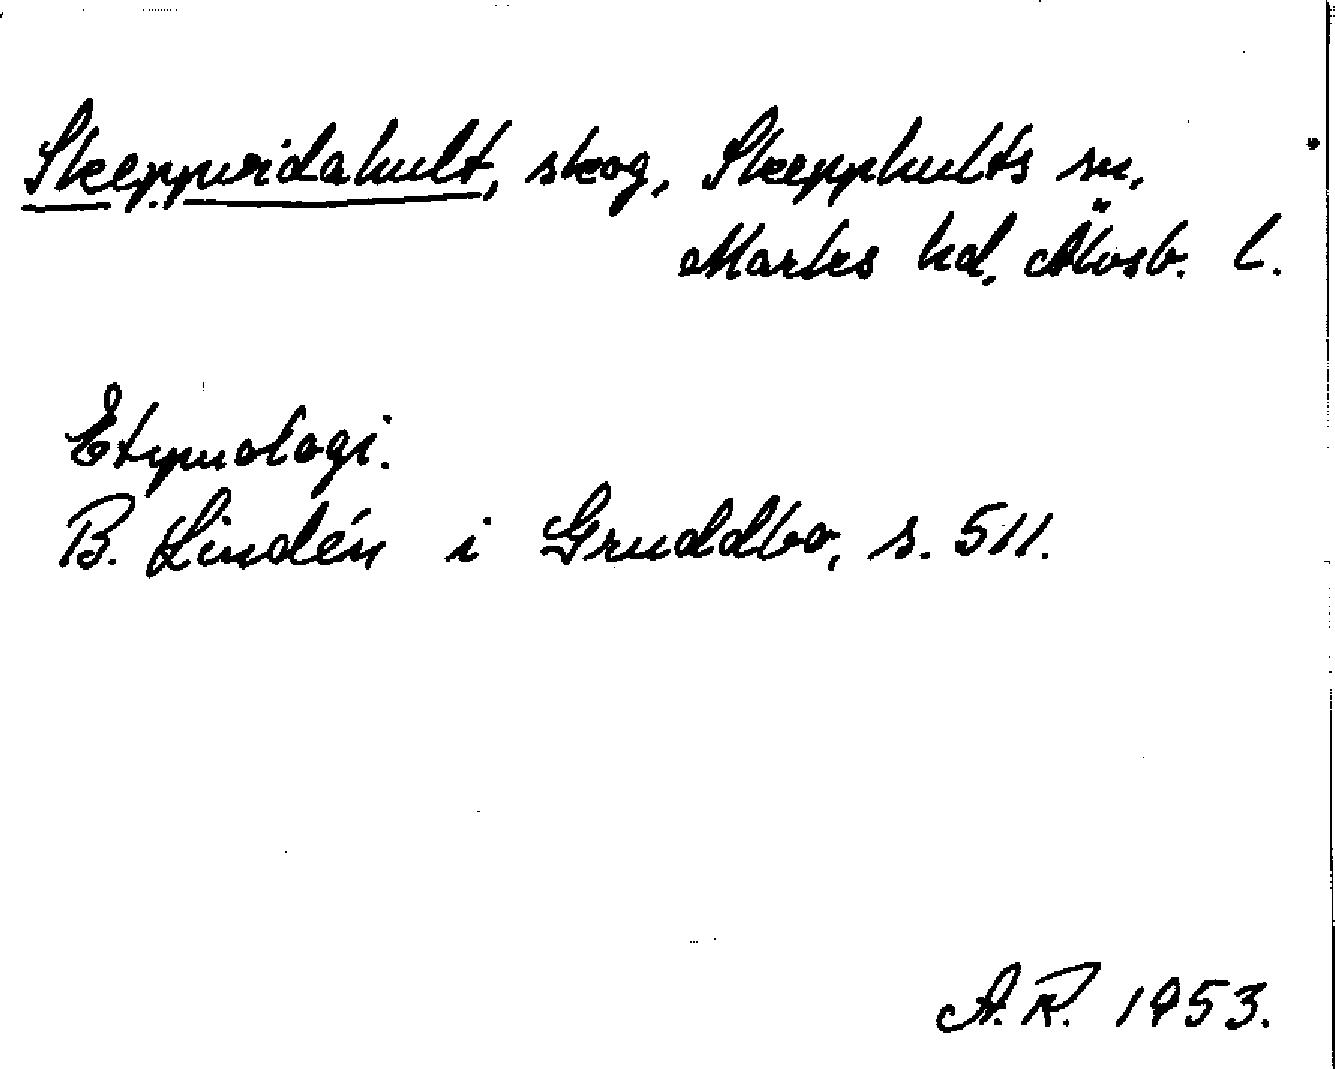 Skeppvidahult, skog, Skepphults sn,
Marks hd, Älvsb. l.
Etymologi.
B. Lindén i Gruddbo, s. 511.
A.R. 1953.